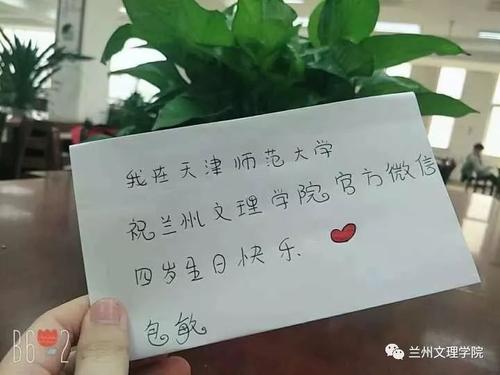 我在天津师范大学
祝兰州文理学院官方微信
四岁生日快乐
包敏
B612
兰州文理学院